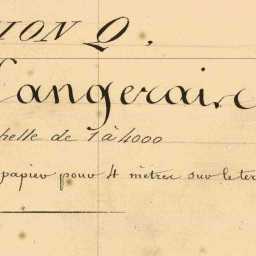 ION Q.
angeraire
helle de 1 à 4000
papier pour 4 mètres sur le ter